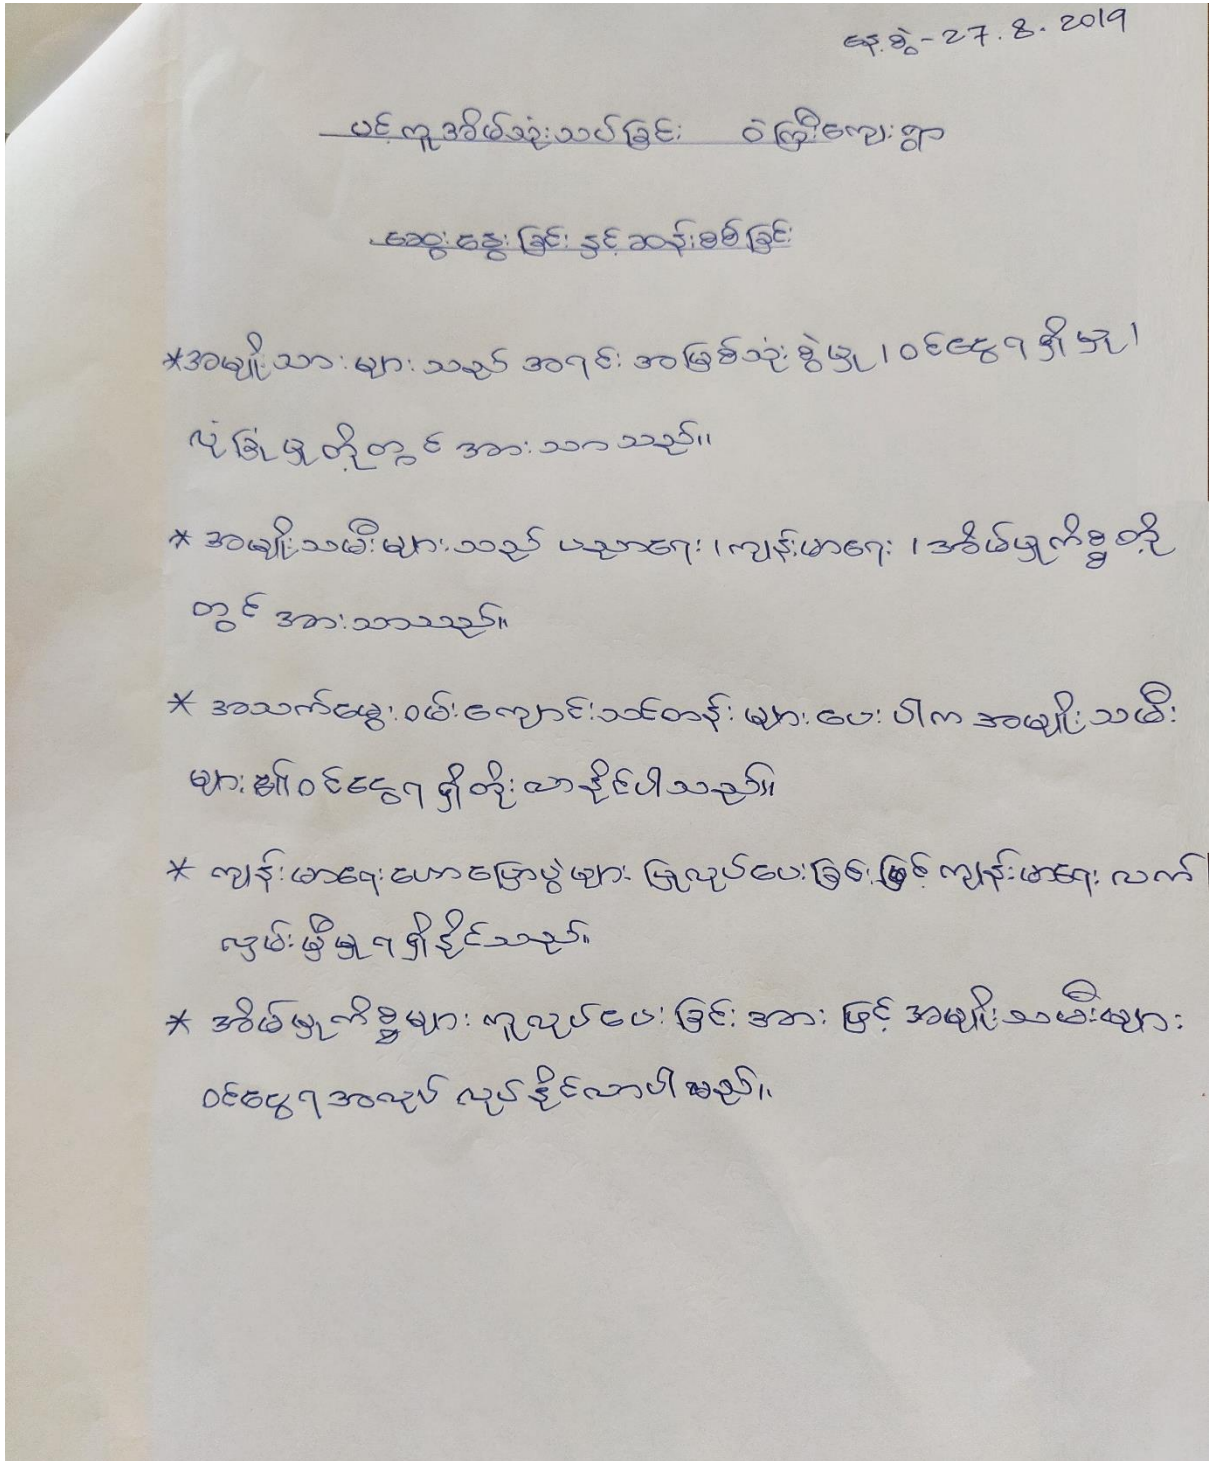 နေ့စွဲ - 27.8.2019
ပင့်ကူအိမ်သုံးသပ်ခြင်း ဝဲကြီးကျေးရွာ
ဆွေးနွေးခြင်းနှင့်ဆန်းစစ်ခြင်း
*အမျိုးသားများသည် အရင်းအမြစ်သုံးစွဲမှု၊ ဝင်ငွေရရှိမှု၊
လုံခြုံမှုတို့တွင် အားသာသည်။
* အမျိုးသမီးများသည် ပညာရေး၊ ကျန်းမာရေး၊ အိမ်မှုကိစ္စတို့
တွင် အားသာသည်။
* အသက်မွေးဝမ်းကျောင်းသင်တန်းများပေးပါက အမျိုးသမီး
များ၏ဝင်ငွေရရှိတိုးလာနိုင်ပါသည်။
* ကျန်းမာရေးဟောပြောပွဲများ ပြုလုပ်ပေးခြင်းဖြင့် ကျန်းမာရေး လက်
လှမ်းမှီမှုရရှိနိုင်သည်။
* အိမ်မှုကိစ္စများ ကူလုပ်ပေးခြင်းအားဖြင့် အမျိုးသမီးများ
ဝင်ငွေရအလုပ် လုပ်နိုင်လာပါမည်။